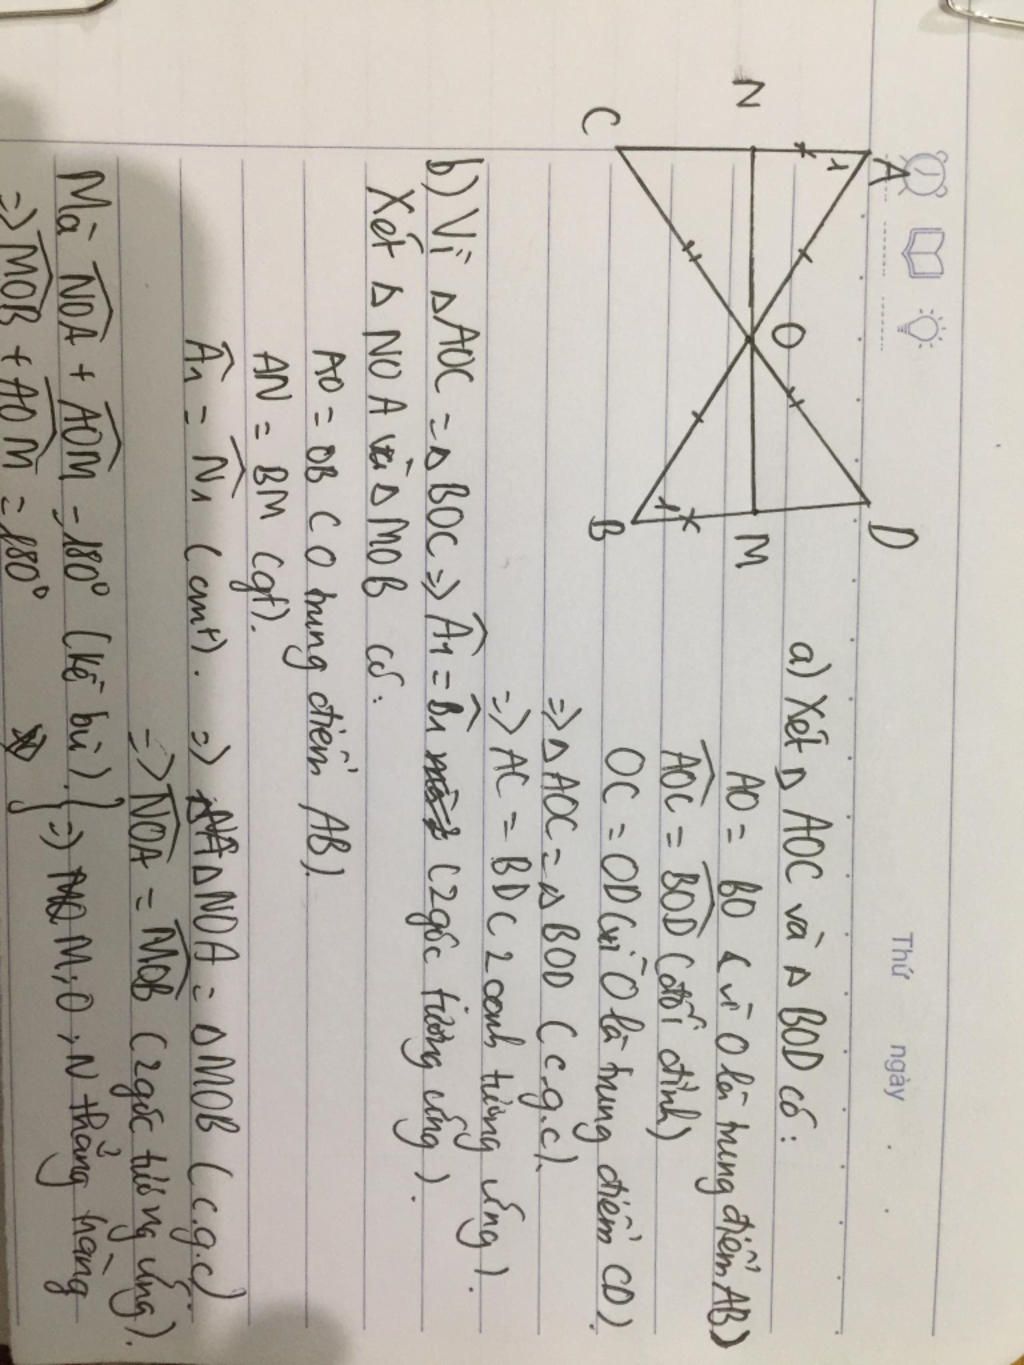 Thứ ngày
A
D
N
O
M
C
B
1
1
a) Xét Δ AOC và Δ BOD có:
AO = BO ( vì O là trung điểm AB)
AOC = BOD (đối đỉnh)
OC = OD (vì O là trung điểm CD).
=> Δ AOC = Δ BOD ( c.g.c).
=> AC = BD ( 2 cạnh tương ứng ).
b) Vì Δ AOC = Δ BOC => A1 = B1 ( 2 góc tương ứng ).
Xét Δ NOA và Δ MOB có:
AO = OB ( O trung điểm AB).
AN = BM (gt).
A1 = N1 (cmt). => Δ NOA = Δ MOB ( c.g.c).
=> NOA = MOB ( 2 góc tương ứng).
Mà NOA + AOM = 180° (kề bù). } => M; O; N thẳng hàng
=> MOB + AOM = 180°